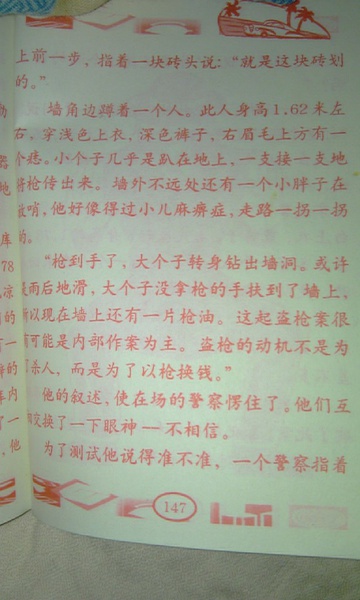 上前一步，指着一块砖头说：“就是这块砖划
的。”
墙角边蹲着一个人。此人身高1.62米左
右。穿浅色上衣，深色裤子，右眉毛上方有一
个痣。小个子几乎是趴在地上，一支接一支地
将枪传出来。墙外不远处还有一个小胖子在
放哨，他好像得过小儿麻痹症，走路一拐一拐
的。
“枪到手了，大个子转身钻出墙洞。或许
是雨后地滑，大个子没拿枪的手扶到了墙上，
所以现在墙上还有一片枪油。这起盗枪案很
有可能是内部作案为主。盗枪的动机不是为
了杀人，而是为了以枪换钱。”
他的叙述，使在场的警察愣住了。他们互
相交换了一下眼神——不相信。
为了测试他说得准不准，一个警察指着
147
地
库
78
凉
的
一
内
了
，他